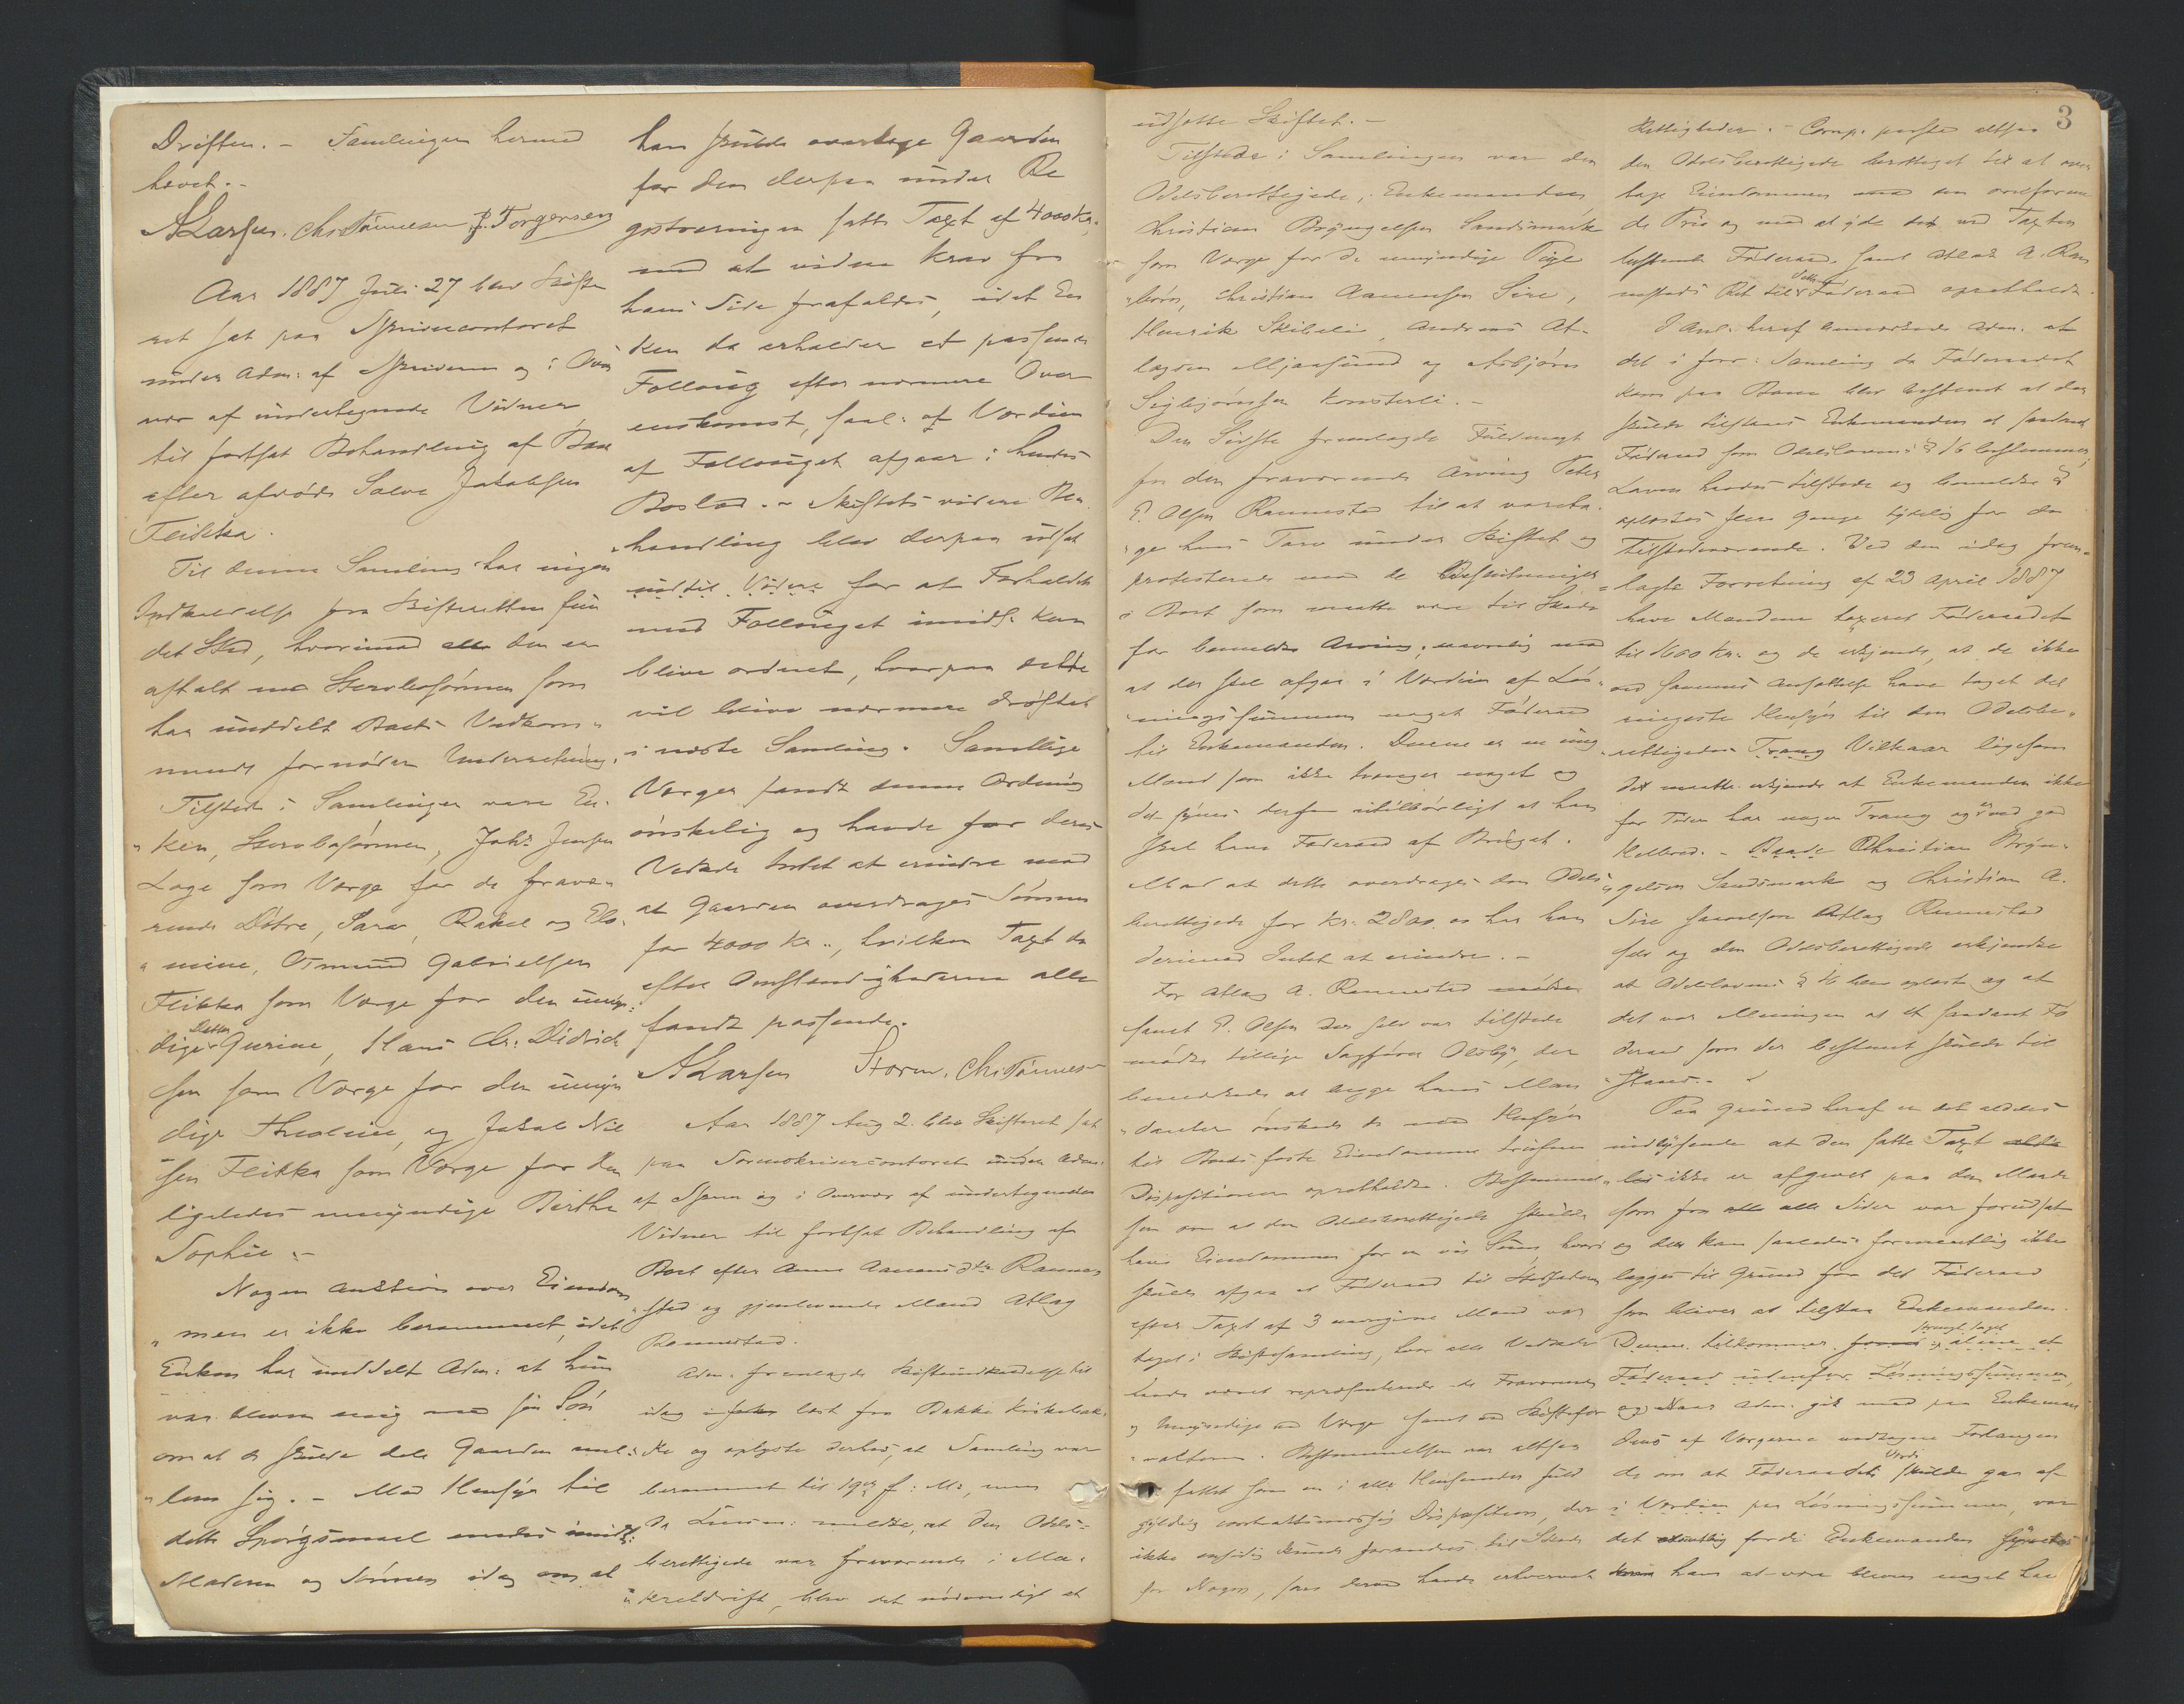 Driften. - Samlingen hermed
hævet. -
ALarsen. Chr Tønnesen J. Torgersen
Aar 1887 Juli 27 blev Skifte
ret sat paa Skrivercontoret
under Adm: af Skriveren og i Over
vær af undertegnede Vidner
til fortsat Behandling af Boet
efter afdøde Salve Jakobsen
Fleikka.
Til denne Samling har ingen
Indkaldelse fra Skifteretten fun
det Sted, hvorimod den er
aftalt med Stervbosønnen som
har meddelt Boets Vedkom-
mende fornøden Underretning.
Tilstede i Samlingen vare En-
"ken, Stervbosønnen, Johs Jensen
Lage som Værge for de fravæ-
rende Døtre, Sara, Rakel og Elo-
"mine, Osmund Gabrielsen
Fleikka som Værge for den umyn-
dige Datter Gurine, Hans Chr: Didrik
sen som Værge for den umyn
dige Thealine, og Jakob Niel
sen Fleikka som Værge for den
ligeledes umyndige Birthe
Sophie. -
Nogen Auktion over Eiendom
"men er ikke berammet, idet
Enken har meddelt Adm: at hun
var bleven enig med sin Søn
om at de skulde dele Gaarden mel-
"lem sig. - Med Hensyn til
dette Spørgsmaal enedes imidl:
Moderen og Sønnen idag om at
han skulde overtage Gaarden
for den derpaa under Re
gistreringen satte Taxt af 4000 Kr.,
med at videre Krav fra
hans Side frafaldes, idet En
ken da erholder et passende
Følloug efter nærmere Over
enskomst, saal: at Værdien
af Føllouget afgaar i hendes
Boslod. - Skiftets videre Be
handling blev derpaa udsat
indtil Videre for at Forholdet
med Føllouget imidl: kan
blive ordnet, hvorpaa dette
vil blive nærmere drøftet
i næste Samling. Samtlige
Værger fandt denne Ordning
ønskelig og havde for deres
Vedkde Intet at erindre mod
at Gaarden overdrages Sønnen
for 4000 Kr., hvilken Taxt de
efter Omstændighederne alle
fandt passende.
ALarsen Storm. Chr Tønnesen
Aar 1887 Aug 2. blev Skifteret sat
paa Sorenskrivercontoret under Adm:
af Skrn og i Overvær af undertegnede
Vidner til fortsat Behandling af
Boet efter Anne Aanensdtr Rannes
"stad og gjenlevende Mand Atlag
Rannestad.
Adm. fremlagde Skifteindkaldelse til
idag læst fra Bakke Kirkebak-
ke og oplyste derhos, at Samling var
berammet til 19de f: M:, men
da Lensm: meldte, at den Odels-
berettigede var fraværende i Ma-
"kreldrift, blev det nødvendigt at
3
udsætte Skiftet. -
Tilstede i Samlingen var den
Odelsberettigede, Enkemanden
Christian Bryngelsen Sandsmark
som Værge for de umyndige Pige
"børn, Christian Aanensen Sire,
Henrik Skibeli, Andreas At-
lagsen Mjaasund og Asbjørn
Sigbjørnsen Konsterli. -
Den Sidste fremlagde Fuldmagt
fra den fraværende Arving Peter
E. Olsen Rannestad til at vareta-
"ge hans Tarv under Skiftet og
protesterede mod de Beslutninger
i Boet som maatte være til Skade
for bemeldte Arving, navnlig mod
at der skal afgaa i Værdien af Løs-
"ningssummen noget Føderaad
til Enkemanden. Denne er en ung
Mand som ikke trænger noget og
det synes derfor utilbørligt at han
skal have Føderaad af Bruget.
Mod at dette overdrages den Odels
berettigede for Kr. 2800. - har han
derimod Intet at erindre. -
For Atlag A. Rannestad
samt E. Olsen der selv var tilstede
mødte tillige Sagfører Olsby, der
bemærkede at begge hans Man
"danter ønskede de med Hensyn
til Boets faste Eiendomme trufne
Dispositioner opretholdte. Bestemmel
sen om at den Odelsberettigede skulde
have Eiendommen for en vis Sum hvori
skulde afgaa et Føderaad til
efter Taxt af 3 Mænd var
taget i Skiftesamling, hvor alle Vedkde
havde været repræsenterede de Fraværende
og Umyndige ved Værge samt ved Skiftefor
"valteren. Bestemmelsen var altsaa
fattet som en i alle Henseender fuld
gyldig contraktmæssig Disposition, der
ikke ensidig kunde forandres til Skade
for Nogen, som derved havde erhvervet
Rettigheder. - Comp. paastod altsaa
den Odelsberettigede berettiget til at over
tage Eiendommen den ovenfornæv
de Pris og mod at yde det ved Taxten
bestemte Føderaad samt Atlak A. Ran
nestads Ret til dette Føderaad opretholdt.
I Anl: heraf bemærkede Adm. at
det i forr: Samling da Føderaadet
kom paa Bane blev bestemt at der
skulde tilstaaes Enkemanden et saadant
Føderaad som Odelslovens § 16 bestemmer;
Loven havdes tilstede og bemeldte §
oplæstes flere Gange tydelig for de
Tilstedeværende. Ved den idag frem-
"lagte Forretning af 23 April 1887
have Mændene taxeret Føderaadet
til 1600 Kr: og de erkjende, at de ikke
ved sammes Ansættelse have taget det
ringeste Hensyn til den Odelsbe-
rettigedes Trang Vilkaar ligesom
det maatte erkjendes at Enkemanden ikke
for Tiden har nogen Trang og er ved god
Helbred. - Baade Christian Bryn-
gelsen Sandsmark og Christian A.
Sire saavelsom Atlag Rannestad
selv og den Odelsberettigede erkjendte
at Odelslovens § 16 blev oplæst og at
det var Meningen at et saadant Fø
deraad som der bestemt skulde til
"staaes. -
Paa Grund heraf er det aldeles
indlysende at den satte Taxt
ikke er afgivet paa den Maade
som fra alle Sider var forudsat
og den kan saaledes formentlig ikke
lægges til Grund for det Føderaad
som bliver at tilstaa Enkemanden.
Denne tilkommer strengt taget alene et
Føderaad udenfor Løsningssummen,
og naar Adm. gik med paa Enkeman
dens af Værgerne vedtagne Forlangen
de om at Føderaadets Værdi skulde gaa af
i Værdien paa Løsningssummen, var
det fordi Enkemanden syntes
ham at være bleven noget